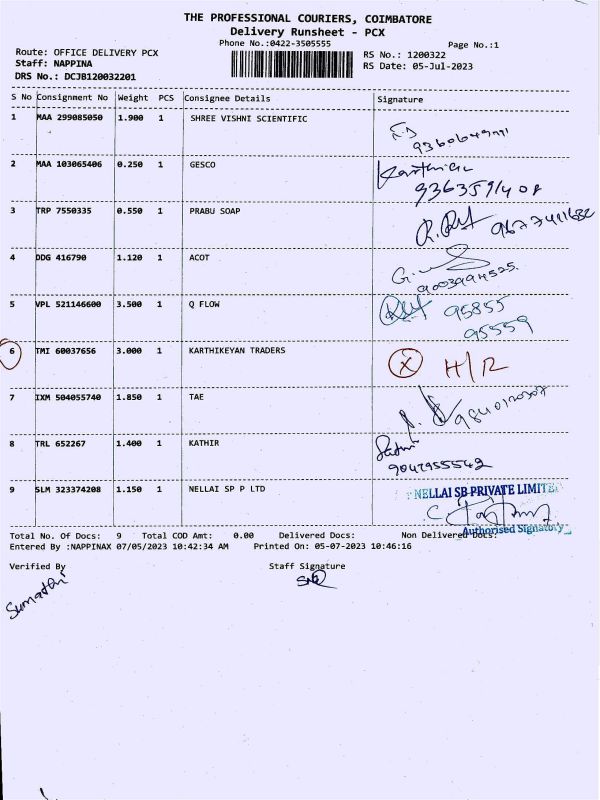 THE PROFESSIONAL COURIERS, COIMBATORE
Delivery Runsheet - PCX
Phone No.:0422-3505555
Page No.:1
Route: OFFICE DELIVERY PCX
RS No.: 1200322
Staff: NAPPINA
RS Date: 05-Jul-2023
DRS No.: DCJB120032201
S No Consignment No Weight PCS Consignee Details Signature
1 MAA 299085050 1.900 1 SHREE VISHNI SCIENTIFIC
2 MAA 103065406 0.250 1 GESCO
3 TRP 7550335 0.550 1 PRABU SOAP
9677411682
4 DDG 416790 1.120 1 ACOT
9003994525.
5 VPL 521146600 3.500 1 Q FLOW
95855
95559
6 TMI 60037656 3.000 1 KARTHIKEYAN TRADERS X H/R
7 IXM 504055740 1.850 1 TAE
8 TRL 652267 1.400 1 KATHIR
9047955542
9 SLM 323374208 1.150 1 NELLAI SP P LTD
NELLAI SB PRIVATE LIMITE
Authorised Signatory
Total No. Of Docs: 9 Total COD Amt: 0.00 Delivered Docs: Non Delivered Docs:
Entered By :NAPPINAX 07/05/2023 10:42:34 AM Printed On: 05-07-2023 10:46:16
Verified By Staff Signature
Sumathi